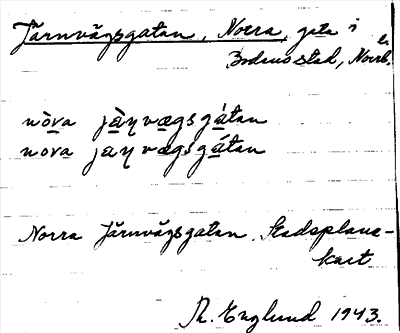 Järnvägsgatan, Norra, gata i
Bodens stad, Norrb.
nò̱va jà̱ŋvægsgá̱tan
nova jaŋvægsgá̱tan
Norra Järnvägsgatan. Stadsplane-
kart
Th. Englund 1943.